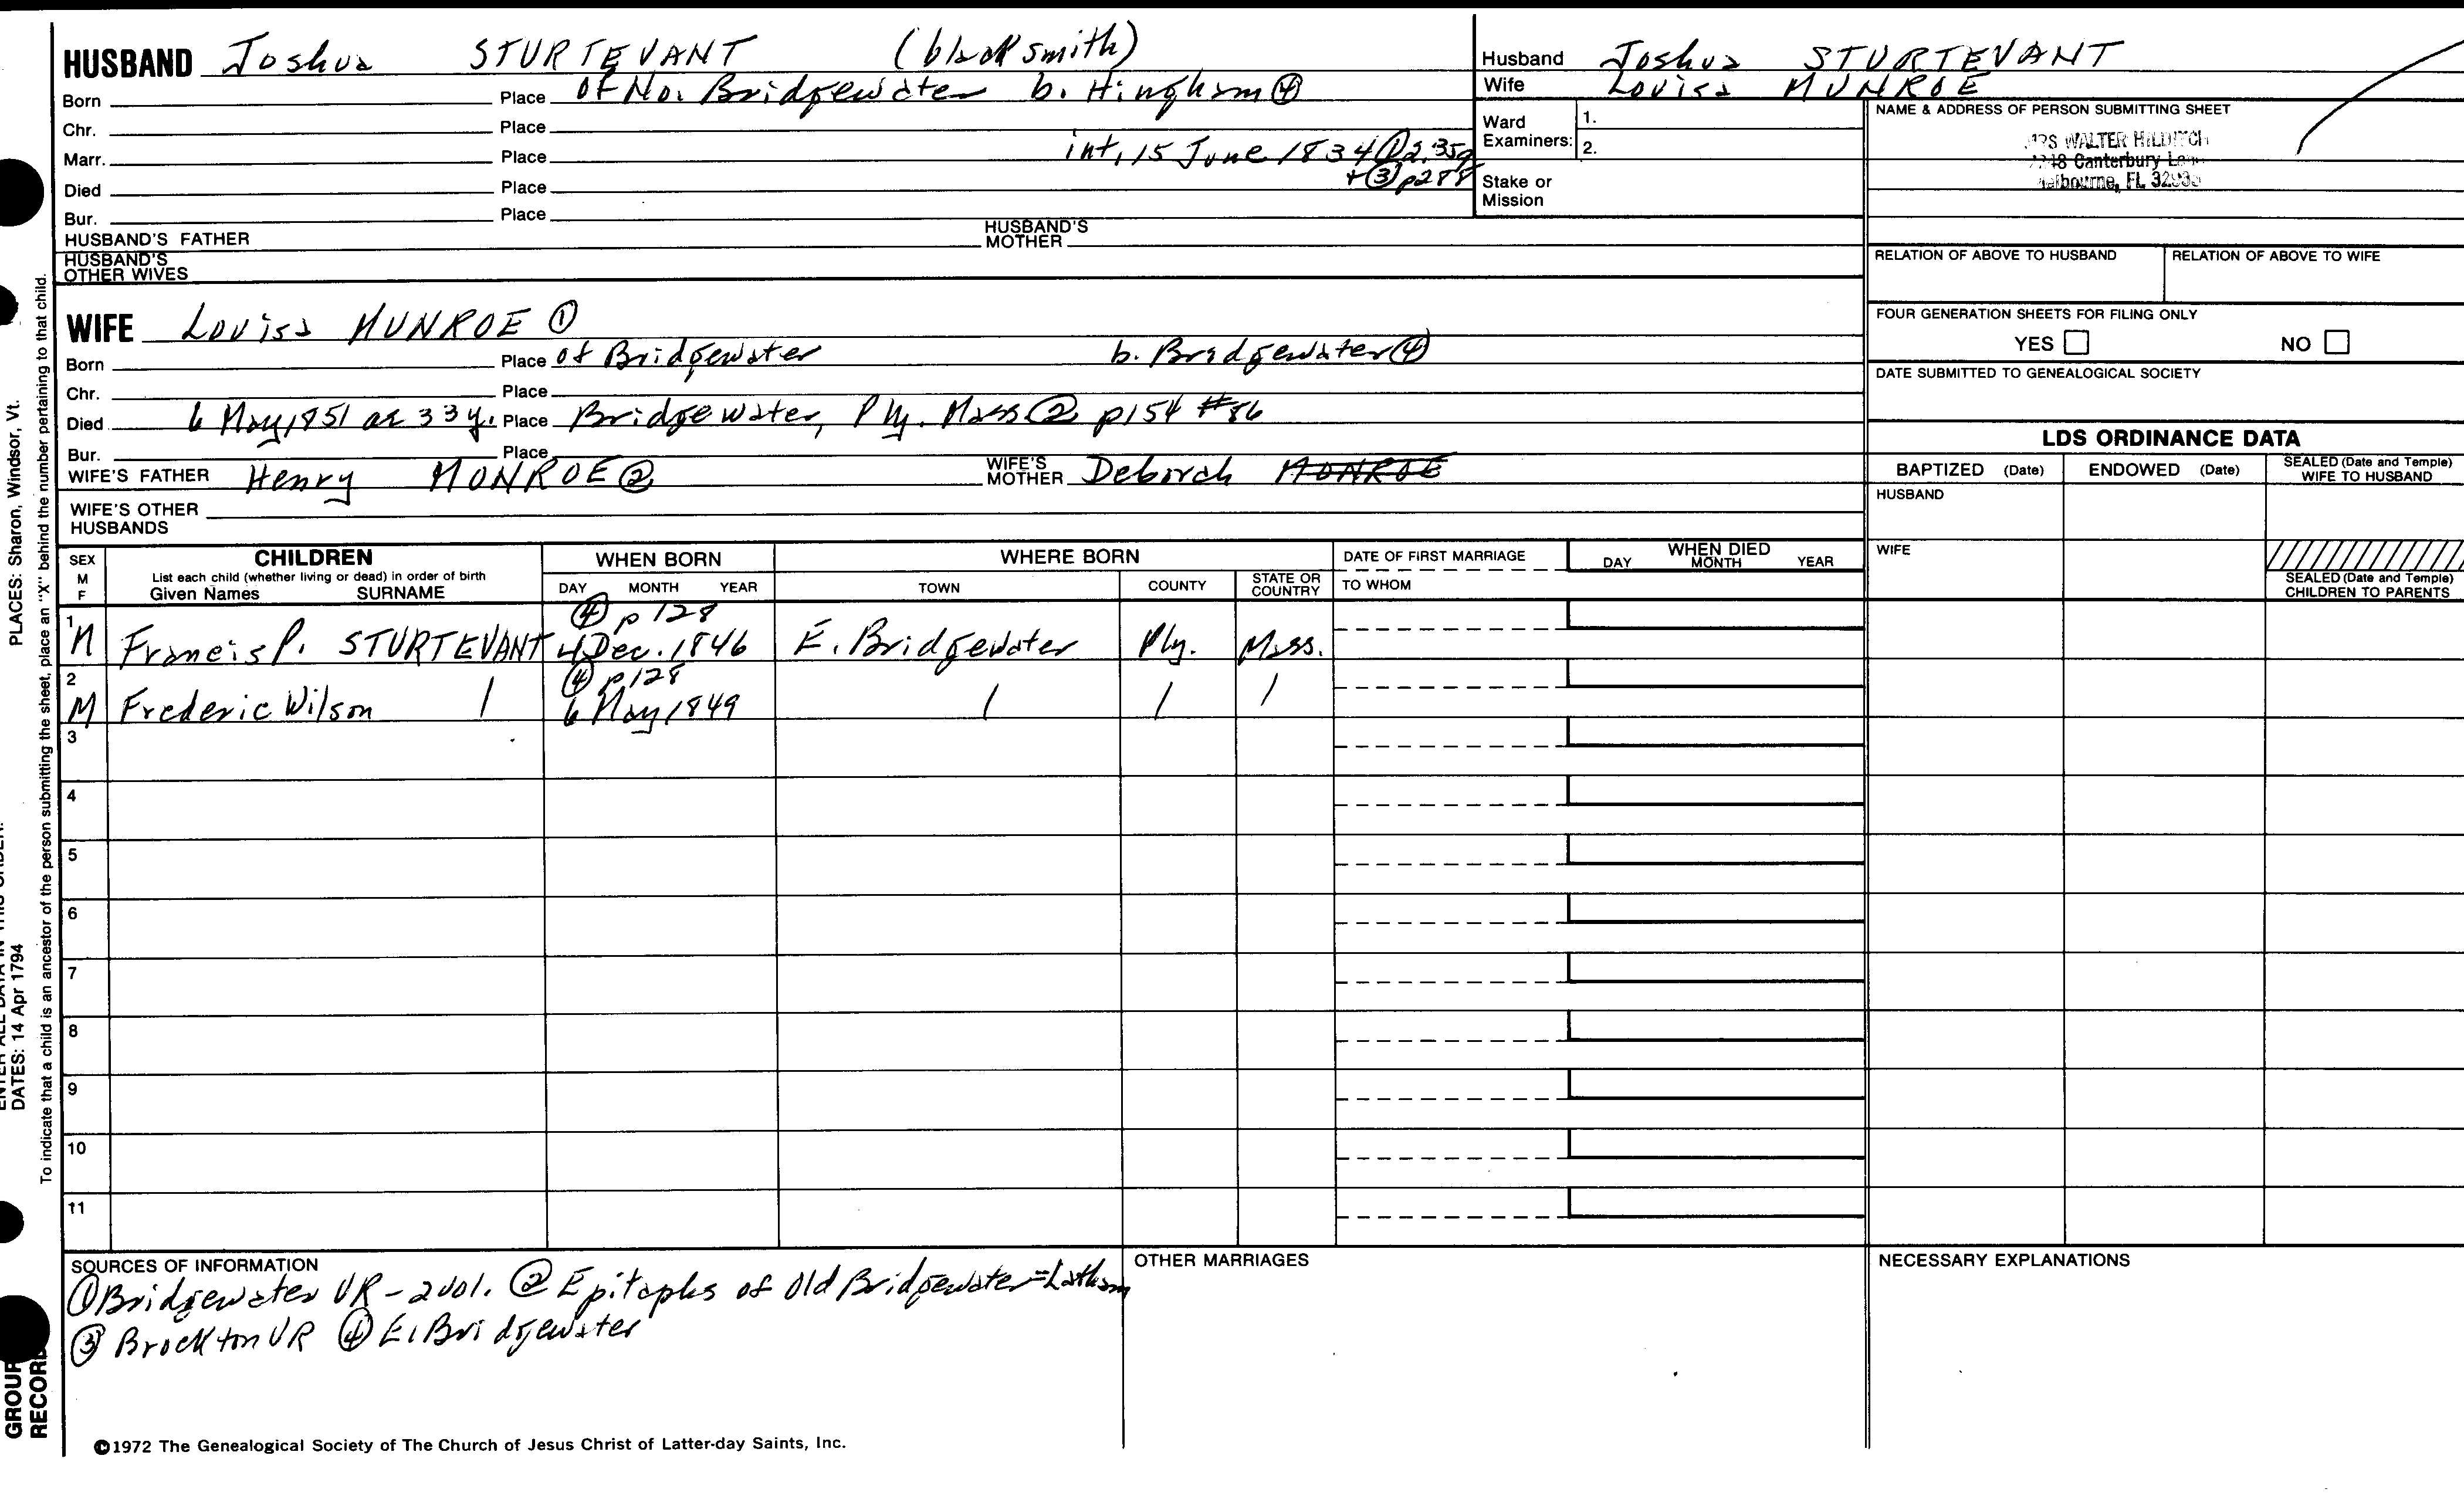 HUSBAND Joshua STURTEVANT (blacksmith)
Born Place of No. Bridgewater b. Hingham ④
Chr. Place
Marr. Place int, 15 June 1834 ① 2,359
+ ③ p288
Died Place
Bur. Place
HUSBAND'S FATHER HUSBAND'S MOTHER
HUSBAND'S OTHER WIVES
Husband Joshua STURTEVANT
Wife Louisa MUNROE
Ward Examiners: 1.
2.
Stake or Mission
NAME & ADDRESS OF PERSON SUBMITTING SHEET
MRS WALTER HILDITCH
Canterbury
Melbourne, FL
RELATION OF ABOVE TO HUSBAND RELATION OF ABOVE TO WIFE
FOUR GENERATION SHEETS FOR FILING ONLY
YES NO
DATE SUBMITTED TO GENEALOGICAL SOCIETY
WIFE Louisa MUNROE ①
Born Place of Bridgewater b. Bridgewater ④
Chr. Place
Died 6 May 1851 ae 33 y. Place Bridgewater, Ply. Mass ② p154 #86
Bur. Place
WIFE'S FATHER Henry MONROE ② WIFE'S MOTHER Deborah MONROE
WIFE'S OTHER HUSBANDS
LDS ORDINANCE DATA
BAPTIZED (Date) ENDOWED (Date) SEALED (Date and Temple) WIFE TO HUSBAND
HUSBAND
WIFE
SEALED (Date and Temple) CHILDREN TO PARENTS
SEX M F CHILDREN WHEN BORN WHERE BORN DATE OF FIRST MARRIAGE WHEN DIED
List each child (whether living or dead) in order of birth
Given Names SURNAME DAY MONTH YEAR TOWN COUNTY STATE OR COUNTRY TO WHOM DAY MONTH YEAR
④ p128
1 M Francis P. STURTEVANT 4 Dec. 1846 E. Bridgewater Ply. Mass.
④ p128
2 M Frederic Wilson / 6 May 1849 / / /
3
4
5
6
7
8
9
10
11
SOURCES OF INFORMATION
① Bridgewater VR - 2 vol. ② Epitaphs of Old Bridgewater = Latham
③ Brockton VR ④ E. Bridgewater
OTHER MARRIAGES
NECESSARY EXPLANATIONS
©1972 The Genealogical Society of The Church of Jesus Christ of Latter-day Saints, Inc.
PLACES: Sharon, Windsor, Vt.
DATES: 14 Apr 1794
To indicate that a child is an ancestor of the person submitting the sheet, place an "X" behind the number pertaining to that child.
GROUP
RECORD